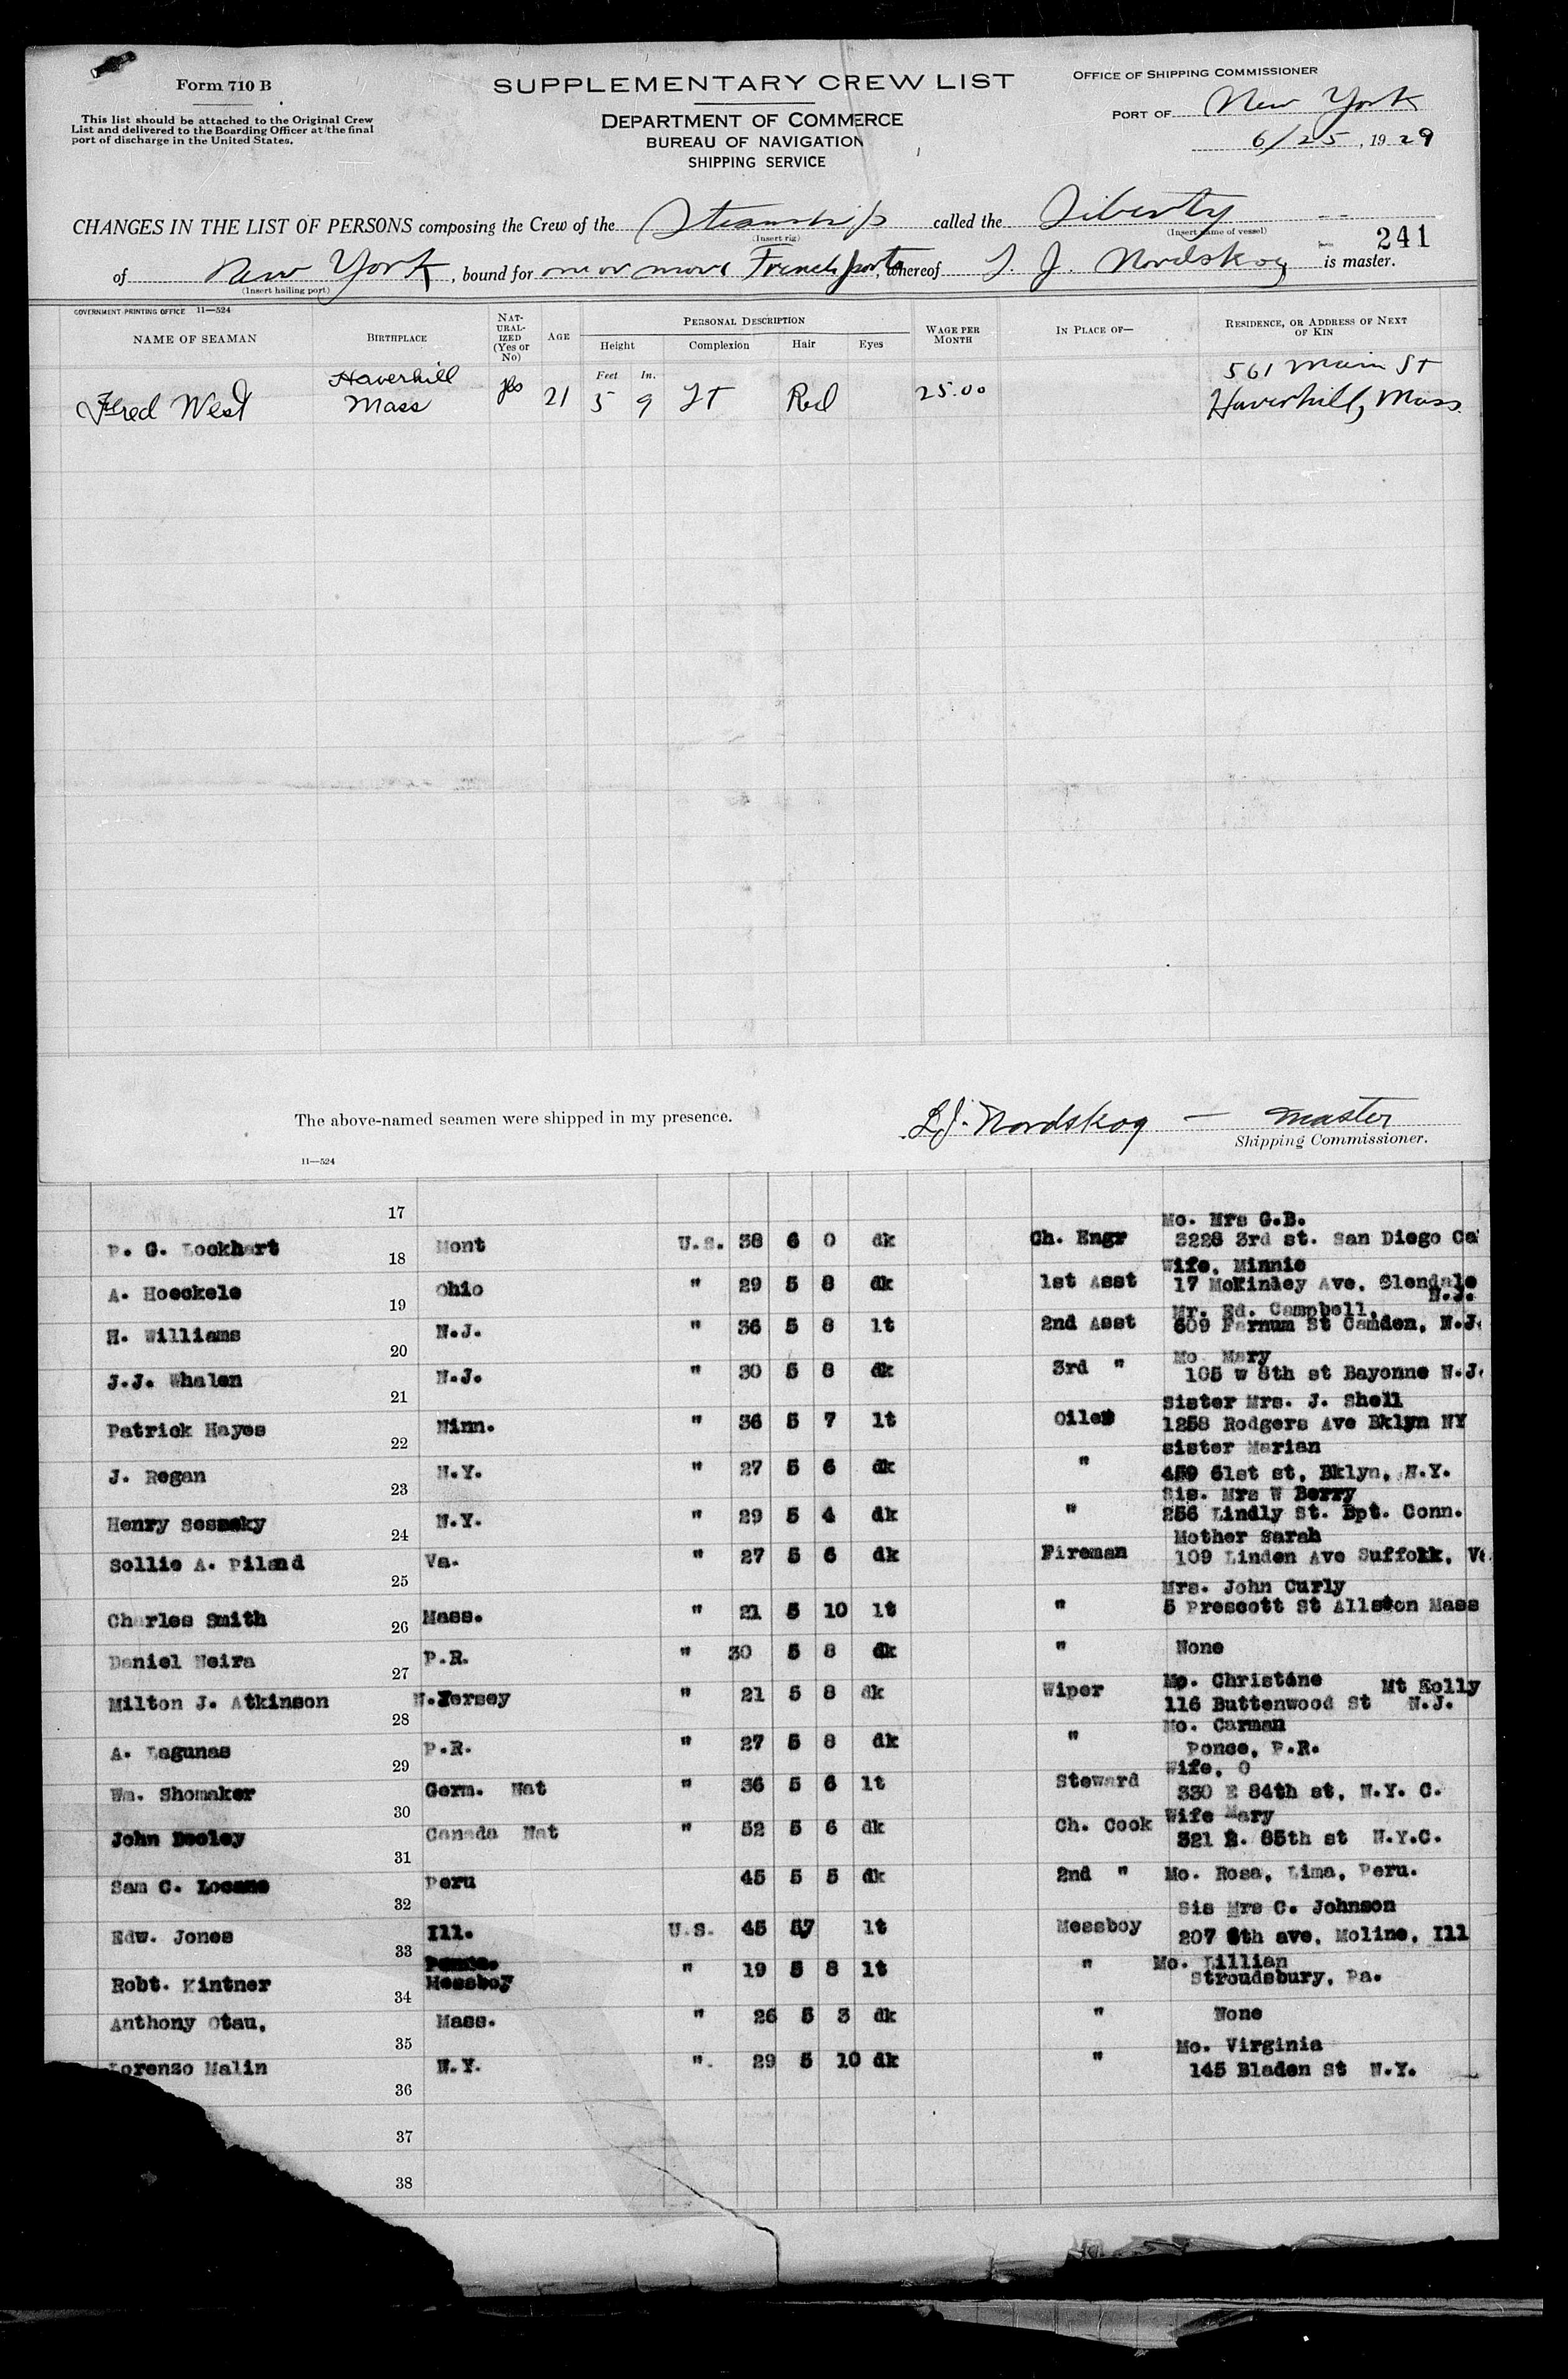 Form 710 B
This list should be attached to the Original Crew
List and delivered to the Boarding Officer at the final
port of discharge in the United States.
SUPPLEMENTARY CREW LIST
DEPARTMENT OF COMMERCE
BUREAU OF NAVIGATION
SHIPPING SERVICE
OFFICE OF SHIPPING COMMISSIONER
PORT OF New York
6/25, 1929
CHANGES IN THE LIST OF PERSONS composing the Crew of the Steamship called the Liberty
(Insert rig) (Insert name of vessel)
241
of New York, bound for one or more French ports, whereof L. J. Nordskog is master.
(Insert hailing port)
GOVERNMENT PRINTING OFFICE 11—524
NAME OF SEAMAN BIRTHPLACE NAT-URAL-IZED (Yes or No) AGE PERSONAL DESCRIPTION Height Complexion Hair Eyes WAGE PER MONTH IN PLACE OF— RESIDENCE, OR ADDRESS OF NEXT OF KIN
Feet In.
Haverhill 561 Main St
Fred West Mass Yes 21 5 9 LT Red 25.00 Haverhill, Mass.
The above-named seamen were shipped in my presence.
L.J. Nordskog — Master
Shipping Commissioner.
11—524
17
Mo. Mrs G.B.
P. G. Lockhart Mont U.S. 38 6 0 dk Ch. Engr 3228 3rd st. San Diego Ca
18
Wife, Minnie
A. Hoeckele Ohio " 29 5 8 dk 1st Asst 17 McKinley Ave. Glendale
N.J.
19
Mr. Ed. Campbell,
H. Williams N.J. " 36 5 8 lt 2nd Asst 609 Farnum St Camden, N.J.
20
Mo Mary
J.J. Whalen N.J. " 30 5 8 dk 3rd " 105 w 8th st Bayonne N.J.
21
Sister Mrs. J. Shell
Patrick Hayes Minn. " 36 5 7 lt Oiler 1258 Rodgers Ave Bklyn NY
22
sister Marian
J. Regan N.Y. " 27 5 6 dk " 459 61st st, Bklyn, N.Y.
23
Sis. Mrs W Berry
Henry N.Y. " 29 5 4 dk " 256 Lindly St. Bpt. Conn.
24
Mother Sarah
Sollie A. Piland Va. " 27 5 6 dk Fireman 109 Linden Ave Suffolk, Va
25
Mrs. John Curly
Charles Smith Mass. " 21 5 10 lt " 5 Prescott St Allston Mass
26
Daniel Neira P.R. " 30 5 8 dk " None
27
Mo. Christine Mt Holly
Milton J. Atkinson N.Jersey " 21 5 8 dk Wiper 116 Buttenwood St N.J.
28
Mo. Carman
A. Lagunas P.R. " 27 5 8 dk " Ponce, P.R.
29
Wife, O
Wm. Shomaker Germ. Nat " 36 5 6 lt Steward 330 E 84th st, N.Y. C.
30
Wife Mary
John Dooley Canada Nat " 52 5 6 dk Ch. Cook 321 E. 85th st N.Y.C.
31
Sam C. Peru 45 5 5 dk 2nd " Mo. Rosa, Lima, Peru.
32
Sis Mrs C. Johnson
Edw. Jones Ill. U.S. 45 57 lt Messboy 207 6th ave, Moline, Ill
33
Penna. Mo. Lillian
Robt. Kintner Messboy " 19 5 8 lt " Stroudsbury, Pa.
34
Anthony Otau, Mass. " 26 5 3 dk " None
35
Mo. Virginia
Lorenzo Malin N.Y. ". 29 5 10 dk " 145 Bladen St N.Y.
36
37
38